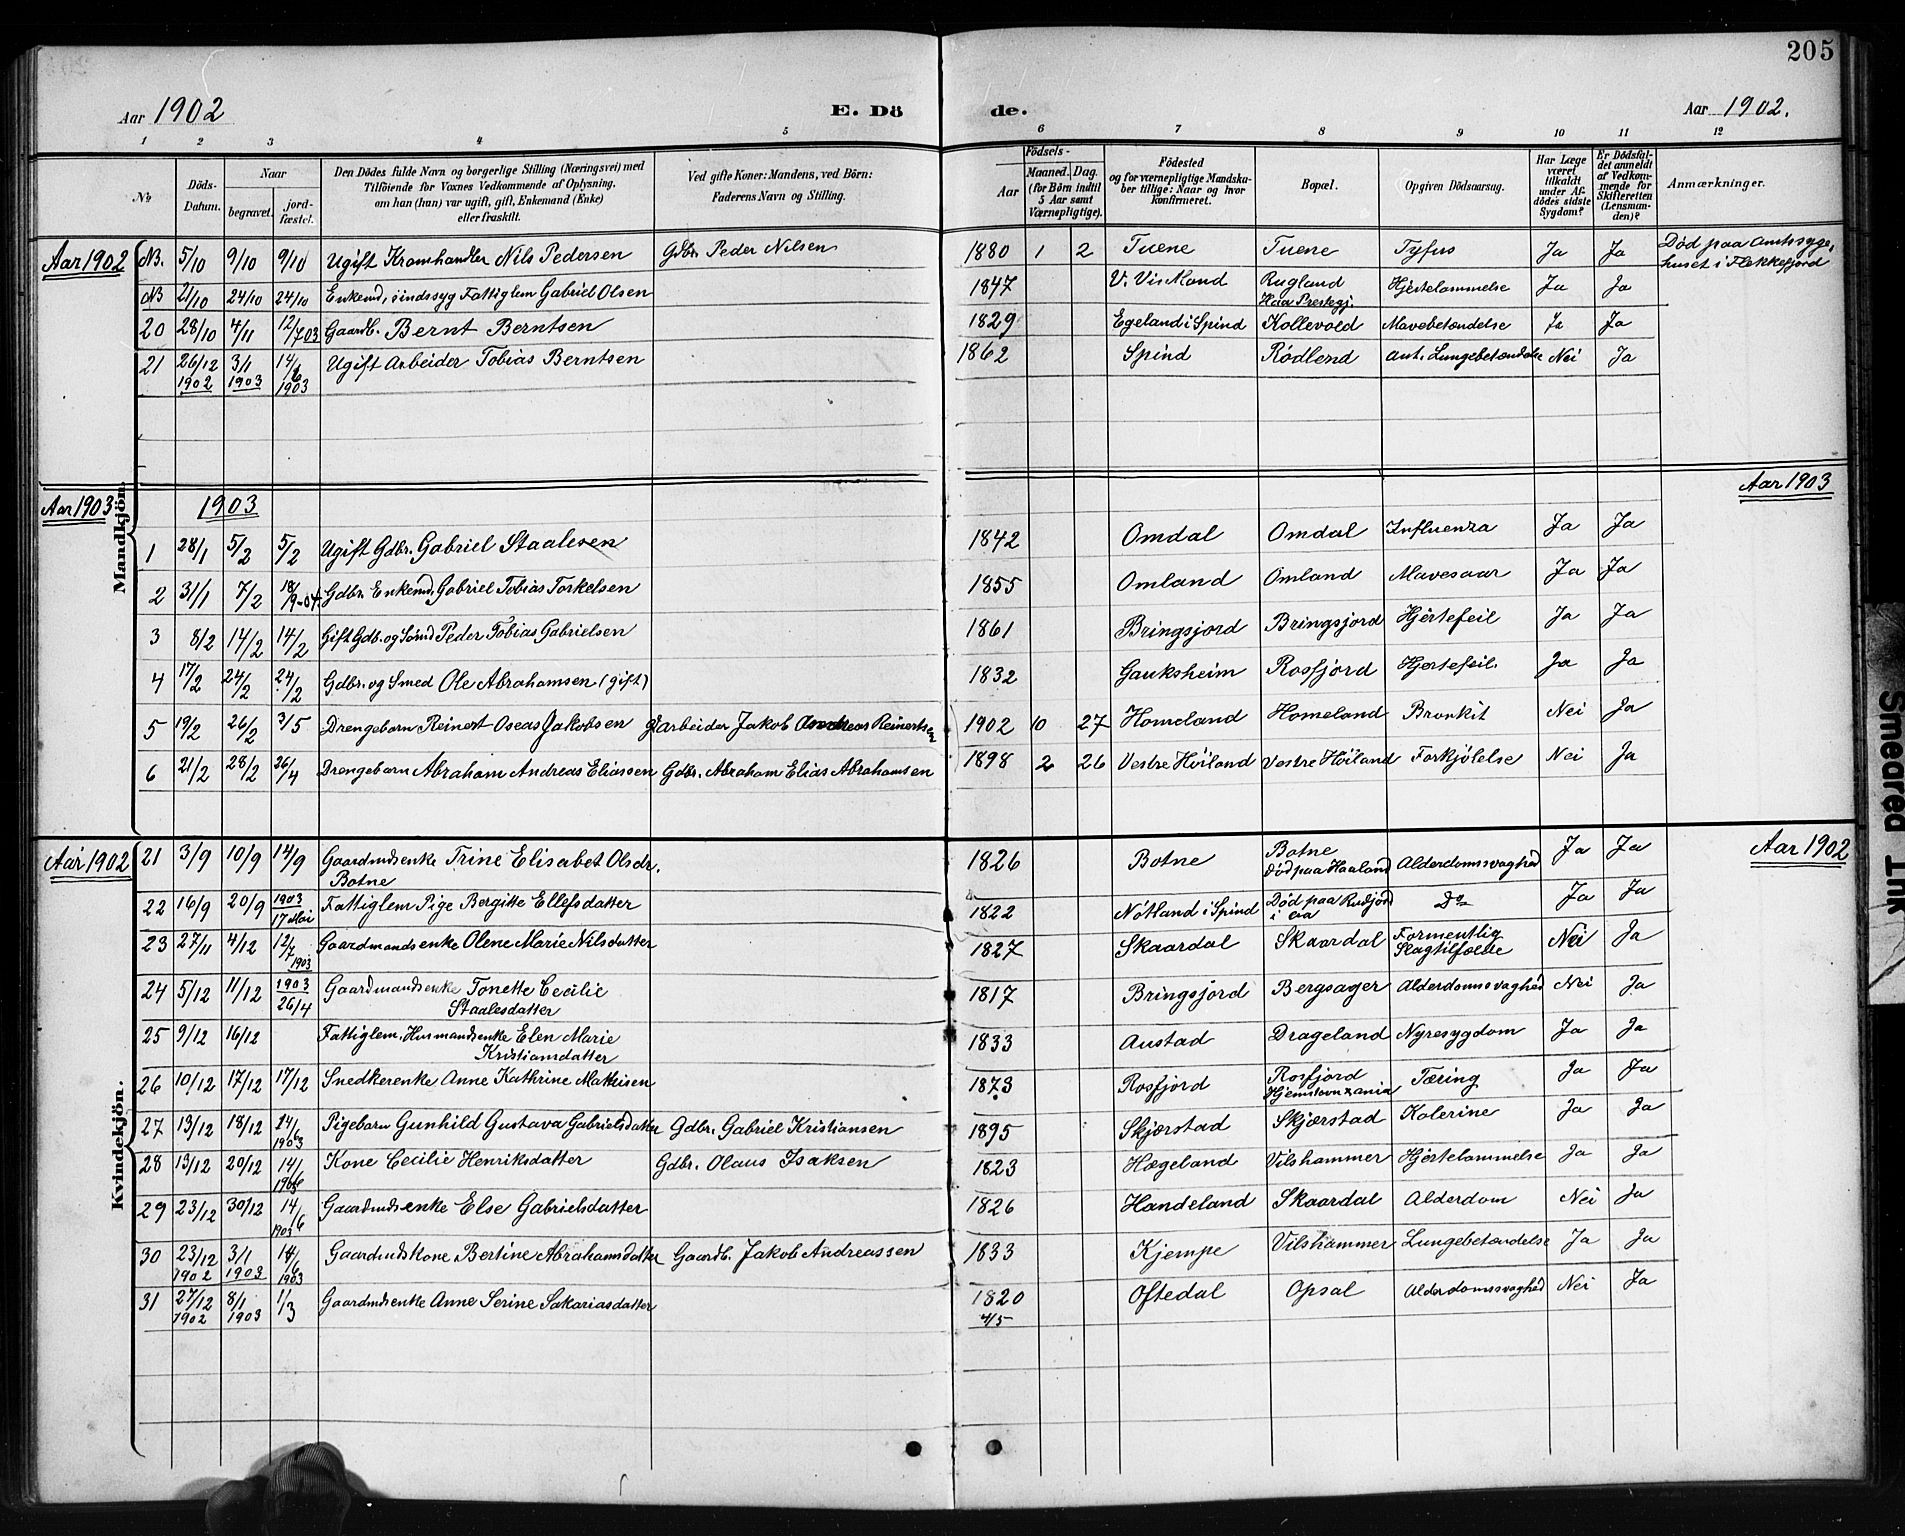 205
Aar 1902 E. Dö de. Aar 1902.
1 2 3 4 5 6 7 8 9 10 11 12
№ Döds-Datum. Naar begravet. jord-fæstet. Den Dödes fulde Navn og borgerlige Stilling (Næringsvei) med Tilföiende for Voxnes Vedkommende af Oplysning, om han (hun) var ugift, gift, Enkemand (Enke) eller fraskilt. Ved gifte Koner: Mandens, ved Börn: Faderens Navn og Stilling. Födsels- Aar Maaned. Dag. (for Börn indtil 5 Aar samt Værnepligtige). Födested og for værnepligtige Mandskaber tillige: Naar og hvor konfirmeret. Bopæl. Opgiven Dödsaarsag. Har Læge været tilkaldt under Afdödes sidste Sygdom? Er Dödsfaldet anmeldt af Vedkommende for Skifteretten (Lensmanden)? Anmærkninger.
Mandkjön.
Aar 1902 NB. 5/10 9/10 9/10 Ugift Kramhandler Nils Pedersen Gdbr. Peder Nilsen 1880 1 2 Tuene Tuene Tyfus Ja Ja Død paa Amtssygehuset i Flekkefjord
NB 21/10 24/10 24/10 Enkemd, sindssyg Fattiglem Gabriel Olsen 1847 V. Vis Aland Rugland Haa Prestegj Hjertelammelse Ja Ja
20 28/10 4/11 12/7 03 Gaardb. Bernt Berntsen 1829 Egeland i Spind Kollevold Mavebetændelse Ja Ja
21 26/12 1902 3/1 1903 14/6 1903 Ugift Arbeider Tobias Berntsen 1862 Spind Rödlend Ant. Lungebetændelse Nei Ja
Aar 1903 1903 Aar 1903
1 28/1 5/2 5/2 Ugift Gdbr. Gabriel Staalesen 1842 Omdal Omdal Influenza Ja Ja
2 31/1 7/2 18/9-04 Gdbr. Enkemd. Gabriel Tobias Torkelsen 1855 Omland Omland Mavesaar Ja Ja
3 8/2 14/2 14/2 Gift Gdb. og Smd Peder Tobias Gabrielsen 1861 Bringsjord Bringsjord Hjertefeil Ja Ja
4 17/2 24/2 24/2 Gdbr. og Smed Ole Abrahamsen (gift) 1832 Gauksheim Rosfjord Hjertefeil. Ja Ja
5 19/2 26/2 3/5 Drengebarn Reinert Oseas Jakobsen Arbeider Jakob Andreas Reinertsen 1902 10 27 Homeland Homeland Bronkit Nei Ja
6 21/2 28/2 26/4 Drengebarn Abraham Andreas Eliassen Gdbr. Abraham Elias Abrahamsen 1898 2 26 Vestre Höiland Vestre Höiland Forkjölelse Nei Ja
Kvindekjön.
Aar 1902 21 3/9 10/9 14/9 Gaardmdsenke Trine Elisabet Olsdr. Botne 1826 Botne Botne Död paa Haaland Alderdomssvaghed Ja Ja Aar 1902
22 16/9 20/9 1903 17 Mai Fattiglem Pige Bergitte Ellefsdatter 1822 Nötland i Spind Död paa Rudjord i Do Ja Ja
23 27/11 4/12 12/7 1903 Gaardmandsenke Olene Marie Nilsdatter 1827 Skaardal Skaardal Formentlig Slagtilfælde Nei Ja
24 5/12 11/12 1903 26/4 Gaardmandsenke Tonette Cecilie Staalesdatter 1817 Bringsjord Bergsager Alderdomssvaghed Nei Ja
25 9/12 16/12 Fattiglem, Husmandsenke Elen Marie Kristiansdatter 1833 Austad Drageland Nyresygdom Ja Ja
26 10/12 17/12 17/12 Snedkerenke Anne Kathrine Mathisen 1873 Rosfjord Rosfjord Tæring Ja Ja
27 13/12 18/12 24/6 1903 Pigebarn Gunhild Gustava Gabrielsdatter Gdbr. Gabriel Kristiansen 1895 Skjærstad Skjærstad Kolerine Ja Ja
28 13/12 20/12 14/6 1903 Kone Cecilie Henriksdatter Gdbr. Olaus Isaksen 1823 Hægeland Vilshammer Hjertelammelse Ja Ja
29 23/12 30/12 14/6 1903 Gaardmdsenke Else Gabrielsdatter 1826 Handeland Skaardal Alderdom Nei Ja
30 23/12 1902 3/1 1903 14/6 1903 Gaardmdskone Bertine Abrahamsdatter Gaardb. Jakob Andreassen 1833 Kjempe Vilshammer Lungebetændelse Ja Ja
31 27/12 1902 8/1 1903 1/3 Gaardmdsenke Anne Serine Sakariasdatter 1820 4/5 Oftedal Opsal Alderdomssvaghed Nei Ja
Smeared Ink